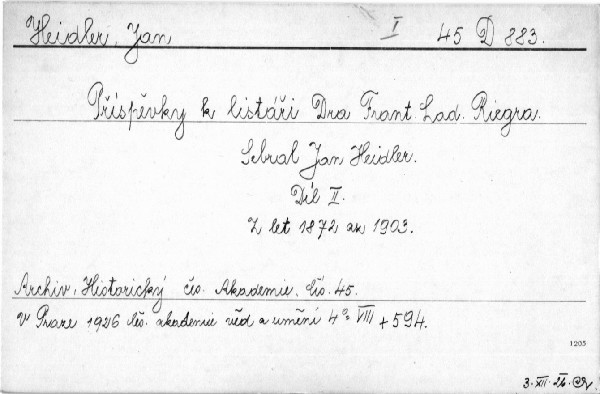 Heidler, Jan I 45 D 883.
Příspěvky k listáři Dra Frant. Lad. Riegra.
Sebral Jan Heidler.
Díl II.
Z let 1872 až 1903.
Archiv, Historický čes. Akademie, čís. 45.
V Praze 1926 čes. akademie věd a umění 4° VIII + 594.
1205
3. XII. 26.